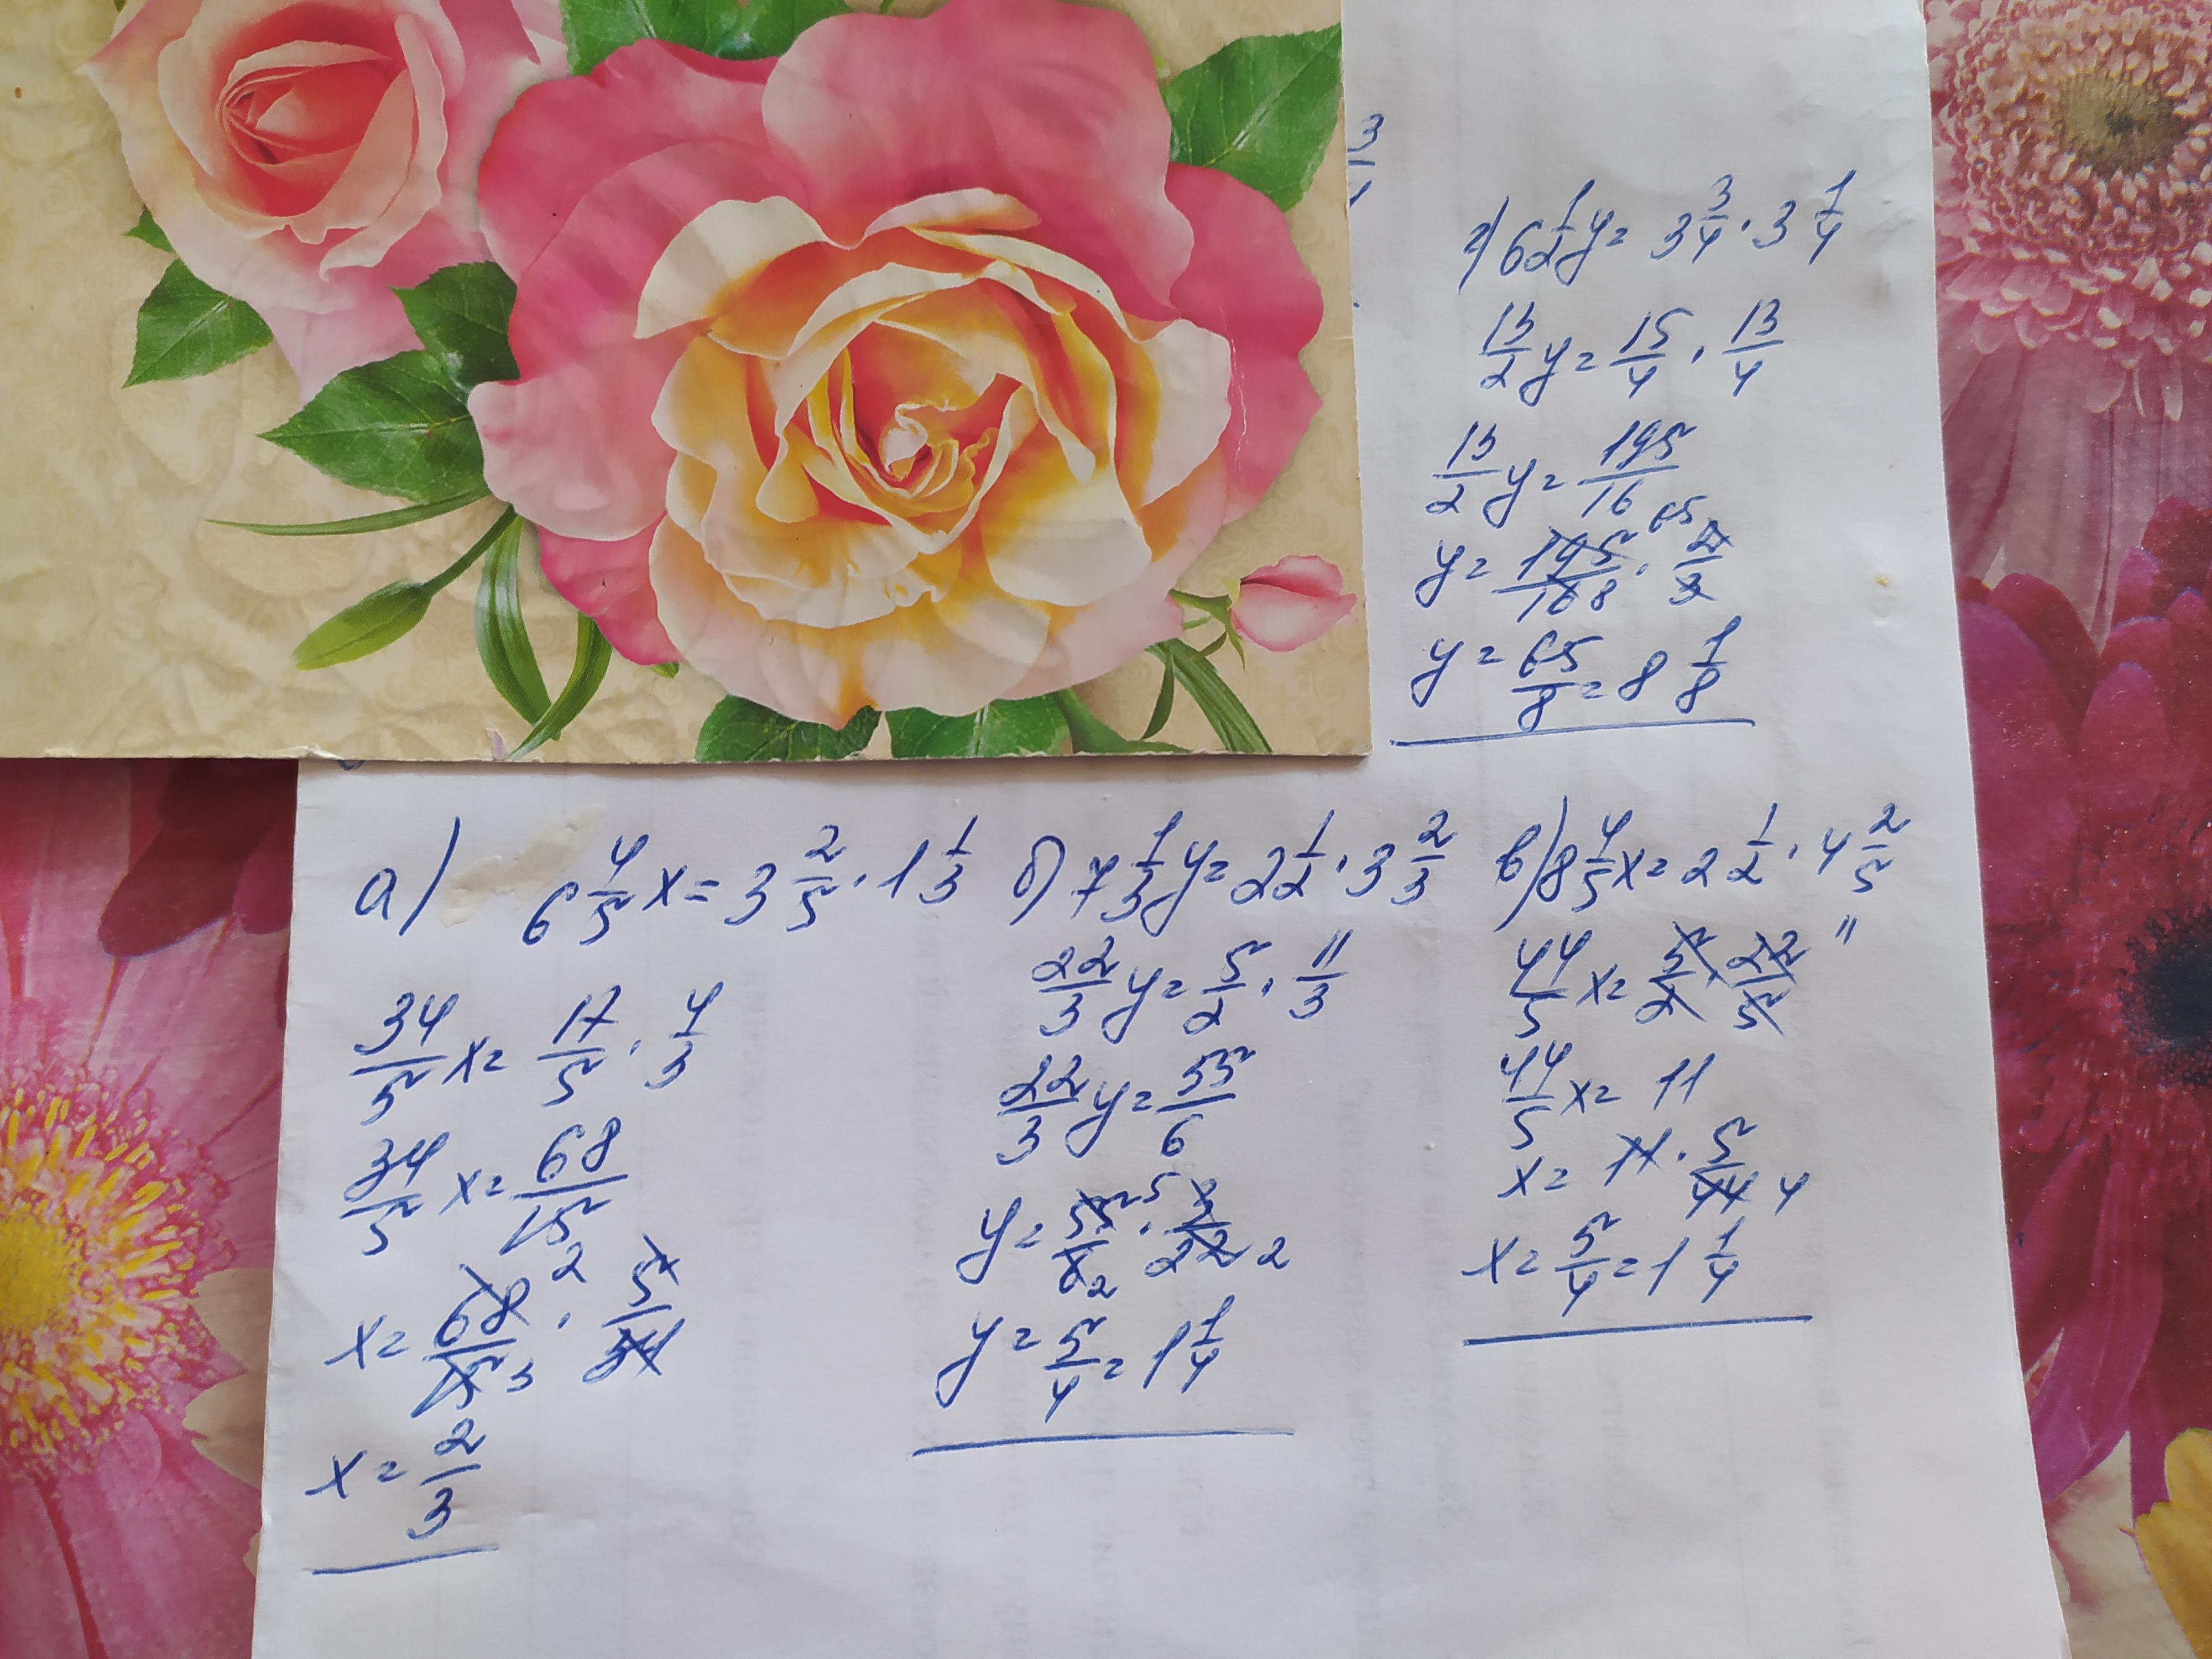 г) 6 1/2 y = 3 3/4 · 3 1/4
13/2 y = 15/4 · 13/4
13/2 y = 195/16
y = 195/16 8 · 65 2/3
y = 65/8 = 8 1/8
а) 6 4/5 x = 3 2/5 · 1 1/3
34/5 x = 17/5 · 4/3
34/5 x = 68/15
x = 68/15 2 3 · 5/34
x = 2/3
б) 7 1/3 y = 2 1/2 · 3 2/3
22/3 y = 5/2 · 11/3
22/3 y = 55/6
y = 55/6 5 2 · 3/22 2
y = 5/4 = 1 1/4
в) 8 4/5 x = 2 1/2 · 4 2/5
44/5 x = 5/2 · 22/5 11
44/5 x = 11
x = 11 · 5/44 4
x = 5/4 = 1 1/4